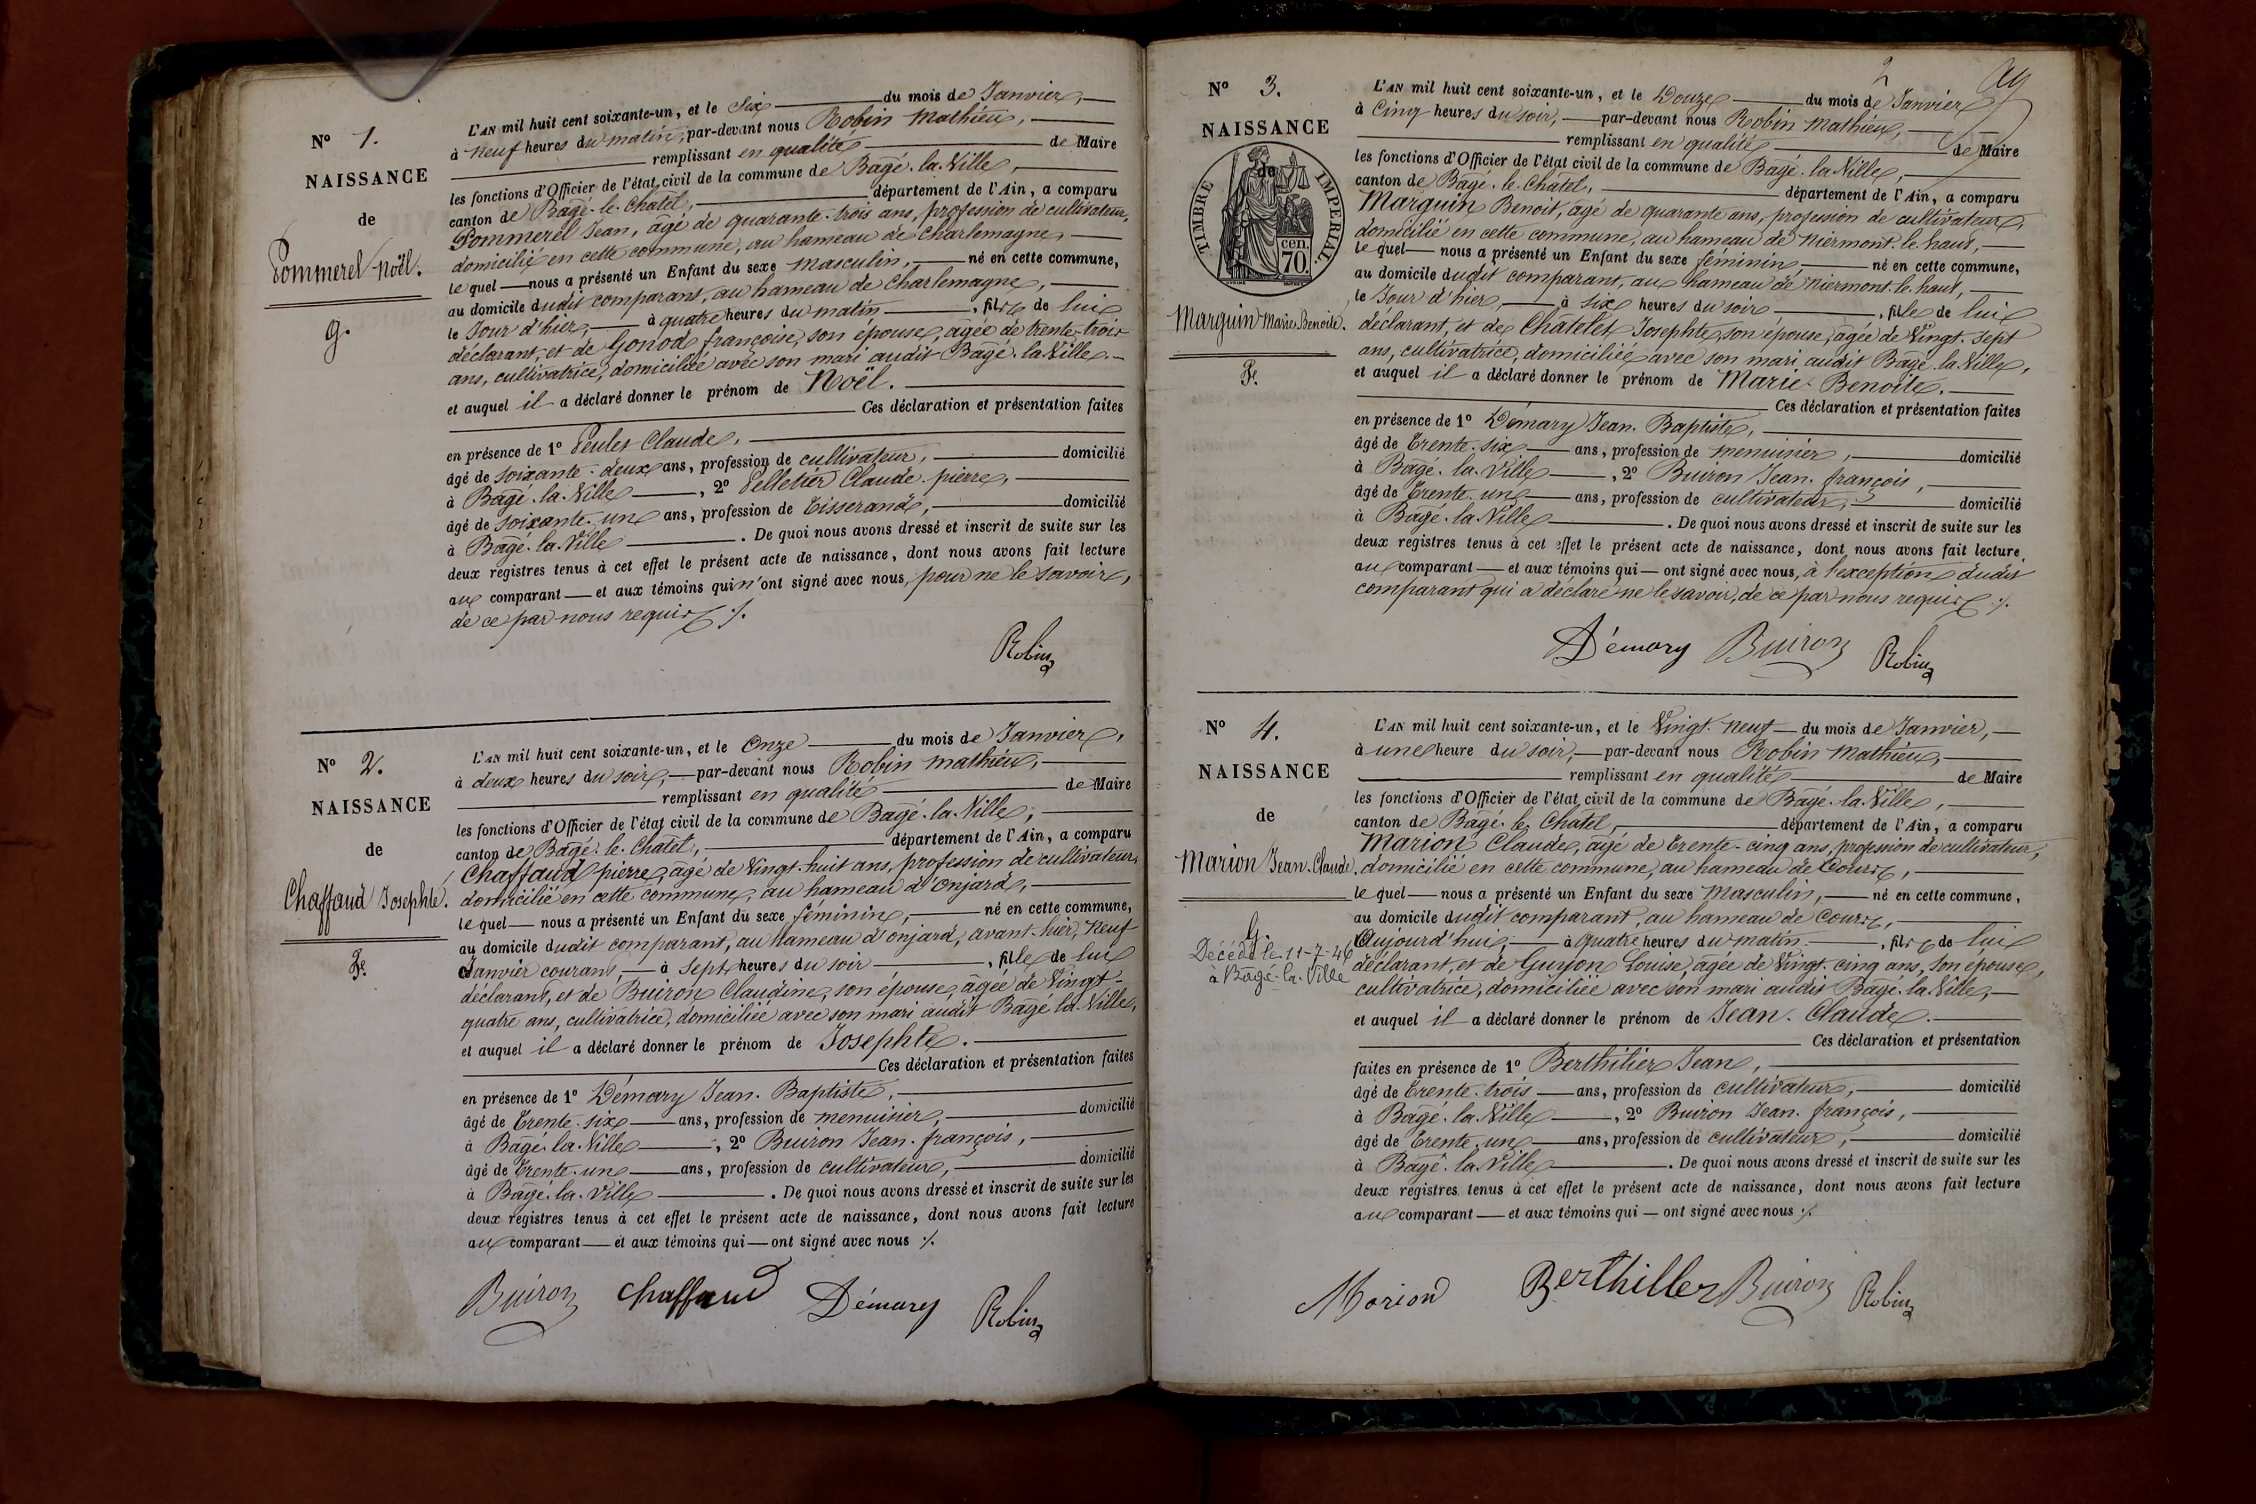 N° 1.
NAISSANCE
de
Pommerel Noël.
g.
L'AN mil huit cent soixante-un, et le Six du mois de Janvier,
à neuf heures du matin, par-devant nous Robin Mathieu,
remplissant en qualité de Maire
les fonctions d'Officier de l'état civil de la commune de Bagé-la-Ville,
canton de Bagé-le-Châtel, département de l'Ain, a comparu
Pommerel Jean, âgé de quarante-trois ans, profession de cultivateur,
domicilié en cette commune, au hameau de Charlemagne,
lequel nous a présenté un Enfant du sexe masculin, né en cette commune,
au domicile dudit comparant, au hameau de Charlemagne,
le Jour d'hier, à quatre heures du matin, fils de lui
déclarant, et de Gonod françoise, son épouse, agée de trente-trois
ans, cultivatrice, domiciliée avec son mari audit Bagé-la-Ville.
et auquel il a déclaré donner le prénom de Noël.
Ces déclaration et présentation faites
en présence de 1° Peulet Claude,
âgé de soixante-deux ans, profession de cultivateur, domicilié
à Bagé-la-Ville, 2° Pelletier Claude-pierre,
âgé de soixante-un ans, profession de Tisserand, domicilié
à Bagé-la-Ville. De quoi nous avons dressé et inscrit de suite sur les
deux registres tenus à cet effet le présent acte de naissance, dont nous avons fait lecture
au comparant et aux témoins qui n'ont signé avec nous, pour ne le savoir,
de ce par nous requis ./.
Robin
N° 2.
NAISSANCE
de
Chaffaud Josephte.
F.
L'AN mil huit cent soixante-un, et le Onze du mois de Janvier,
à deux heures du soir, par-devant nous Robin mathieu,
remplissant en qualité de Maire
les fonctions d'Officier de l'état civil de la commune de Bagé-la-Ville,
canton de Bagé-le-Châtel, département de l'Ain, a comparu
Chaffaud pierre, âgé de Vingt-huit ans, profession de cultivateur,
domicilié en cette commune, au hameau d'Onjard,
lequel nous a présenté un Enfant du sexe féminin, né en cette commune,
au domicile dudit comparant, au hameau d'onjard, avant-hier, neuf
Janvier courant, à Sept heures du soir, fille de lui
déclarant, et de Buiron Claudine, son épouse, agée de Vingt-
quatre ans, cultivatrice, domiciliée avec son mari audit Bagé-la-Ville,
et auquel il a déclaré donner le prénom de Josephte.
Ces déclaration et présentation faites
en présence de 1° Démary Jean-Baptiste,
âgé de Trente-six ans, profession de menuisier, domicilié
à Bagé-la-Ville, 2° Buiron Jean-françois,
âgé de Trente-un ans, profession de cultivateur, domicilié
à Bagé-la-Ville. De quoi nous avons dressé et inscrit de suite sur les
deux registres tenus à cet effet le présent acte de naissance, dont nous avons fait lecture
au comparant et aux témoins qui ont signé avec nous ./.
Buiron Chaffaud Démary Robin
2
N° 3.
NAISSANCE
de
TIMBRE IMPÉRIAL
cen.
70.
Marguin Marie Benoite.
F.
L'AN mil huit cent soixante-un, et le Douze du mois de Janvier
à Cinq heures du soir, par-devant nous Robin Mathieu,
remplissant en qualité de Maire
les fonctions d'Officier de l'état civil de la commune de Bagé-la-Ville,
canton de Bagé-le-Châtel, département de l'Ain, a comparu
Marguin Benoit, âgé de quarante ans, profession de cultivateur,
domicilié en cette commune, au hameau de Niermont-le-haut,
lequel nous a présenté un Enfant du sexe féminin, né en cette commune,
au domicile dudit comparant, au hameau de Niermont-le-haut,
le Jour d'hier, à six heures du soir, fille de lui
déclarant, et de Châtelet Josephte, son épouse, agée de Vingt-sept
ans, cultivatrice, domiciliée avec son mari audit Bagé-la-Ville,
et auquel il a déclaré donner le prénom de Marie-Benoite.
Ces déclaration et présentation faites
en présence de 1° Démary Jean-Baptiste,
âgé de Trente-six ans, profession de menuisier, domicilié
à Bagé-la-Ville, 2° Buiron Jean-françois,
âgé de Trente-un ans, profession de cultivateur, domicilié
à Bagé-la-Ville. De quoi nous avons dressé et inscrit de suite sur les
deux registres tenus à cet effet le présent acte de naissance, dont nous avons fait lecture
au comparant et aux témoins qui ont signé avec nous, à l'exception dudit
comparant qui a déclaré ne le savoir, de ce par nous requis ./.
Démary Buiron Robin
N° 4.
NAISSANCE
de
Marion Jean-Claude.
G.
Décédé le 11-7-46
à Bagé-la-Ville
L'AN mil huit cent soixante-un, et le Vingt-neuf du mois de Janvier,
à une heure du soir, par-devant nous Robin Mathieu,
remplissant en qualité de Maire
les fonctions d'Officier de l'état civil de la commune de Bagé-la-Ville,
canton de Bagé-le-Châtel, département de l'Ain, a comparu
Marion Claude, agé de Trente-cinq ans, profession de cultivateur,
domicilié en cette commune, au hameau de Cours,
lequel nous a présenté un Enfant du sexe Masculin, né en cette commune,
au domicile dudit comparant, au hameau de Cours,
Aujourd'hui, à quatre heures du matin, fils de lui
déclarant, et de Guyon Louise, agée de Vingt-cinq ans, son épouse,
cultivatrice, domiciliée avec son mari audit Bagé-la-Ville,
et auquel il a déclaré donner le prénom de Jean-Claude.
Ces déclaration et présentation
faites en présence de 1° Berthilier Jean,
âgé de Trente-trois ans, profession de cultivateur, domicilié
à Bagé-la-Ville, 2° Buiron Jean-françois,
âgé de Trente-un ans, profession de cultivateur, domicilié
à Bagé-la-Ville. De quoi nous avons dressé et inscrit de suite sur les
deux registres tenus à cet effet le présent acte de naissance, dont nous avons fait lecture
au comparant et aux témoins qui ont signé avec nous ./.
Marion Berthillier Buiron Robin